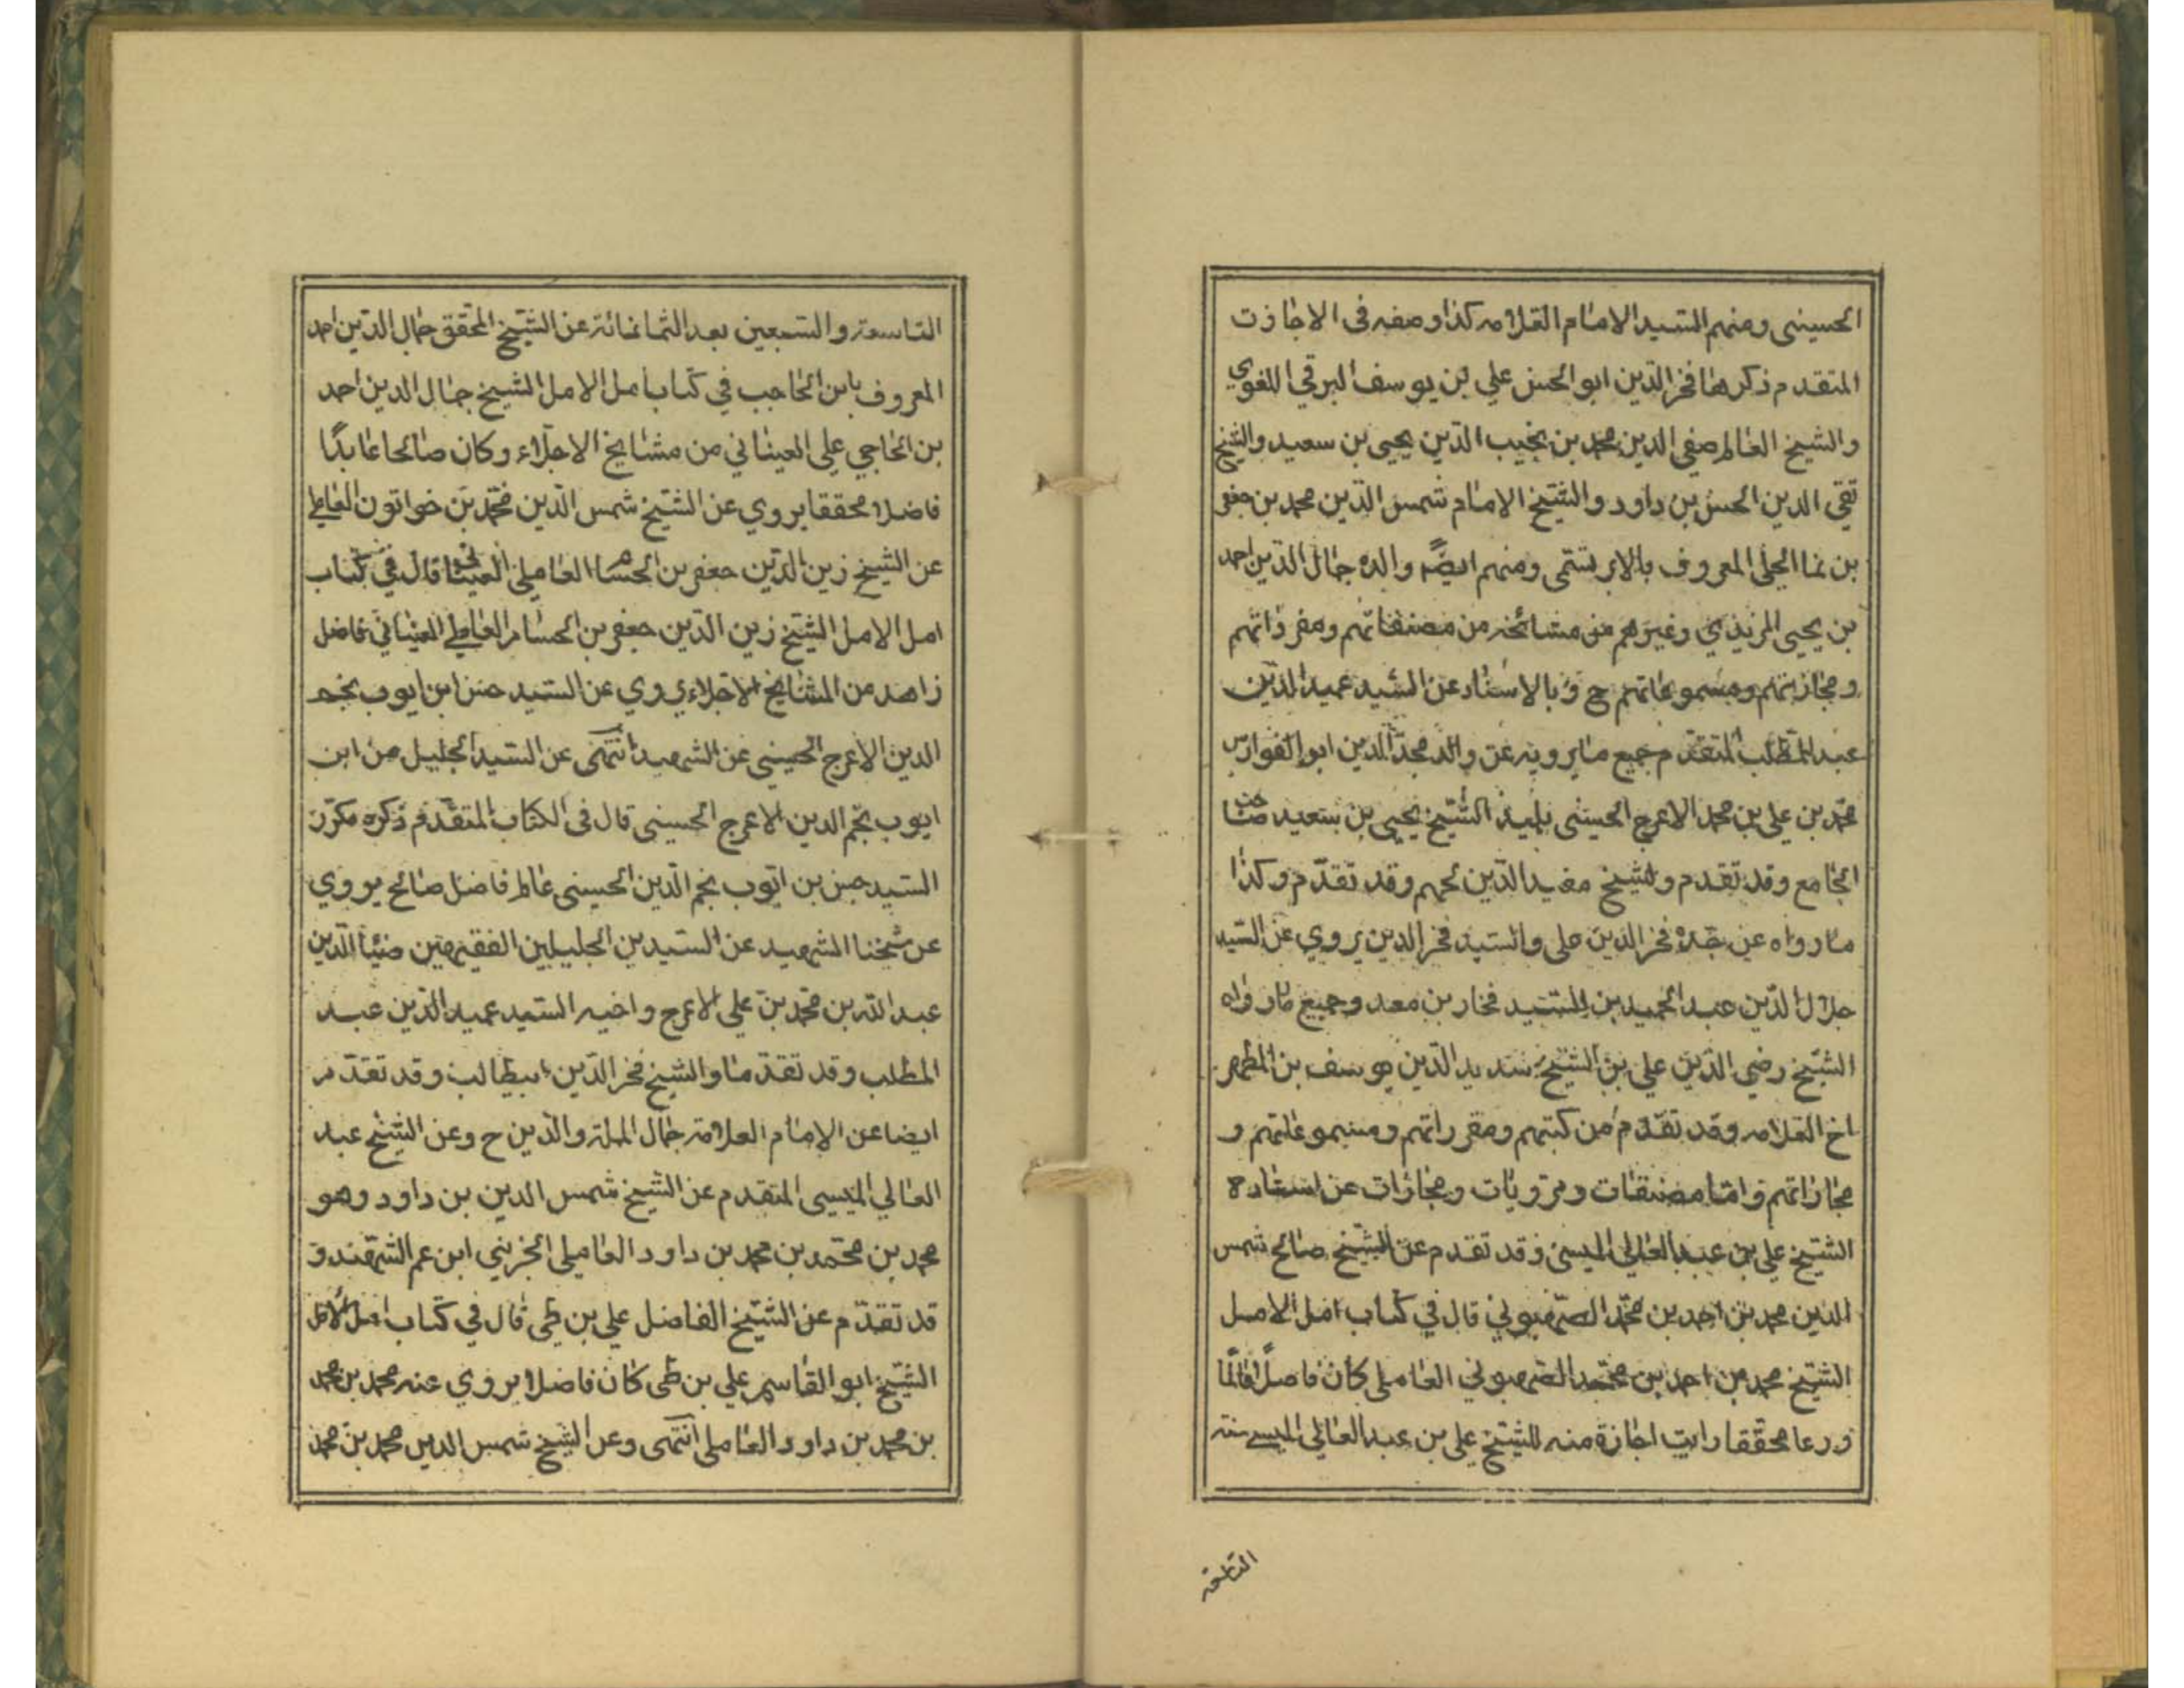 الحسيني ومنهم السيد الامام العلامه كذا وصفه فى الاجازت
المتقدم ذكرها فخر الدين ابو الحسن علي بن يوسف البرقي اللغوي
والشيخ العالم صفي الدين محمد بن نجيب الدين يحيى بن سعيد والشيخ
تقي الدين الحسن بن داود والشيخ الامام شمس الدين محمد بن جعفر
بن نما الحلي المعروف بالابريشمي ومنهم ايضًا والده جمال الدين احمد
بن يحيى المزيدي وغيرهم من مشائخه من مصنفاتهم ومقرراتهم
ومجازاتهم ومسموعاتهم ح وبالاسناد عن السيد عميد الدين
عبد المطلب المتقدم جميع ما يرويه عن والد مجد الدين ابو الفوارس
محمد بن علي بن محمد الاعرج الحسيني تلميذ الشيخ يحيى بن سعيد صاحب
الجامع وقد تقدم والشيخ مفيد الدين بن جهم وقد تقدم وكذا
ما رواه عن جده فخر الدين علي والسيد فخر الدين يروي عن السيد
جلال الدين عبد الحميد بن السيد فخار بن معد وجميع ما رواه
الشيخ رضي الدين علي بن الشيخ سديد الدين يوسف بن المطهر
اخ العلامه وقد تقدم من كتبهم ومقرراتهم ومسموعاتهم و
مجازاتهم واما مصنفات ومرويات ومجازات عن استاده
الشيخ علي بن عبد العالي الميسي وقد تقدم عن الشيخ صالح شمس
الدين محمد بن احمد بن محمد الصهيوني قال في كتاب امل الامل
الشيخ محمد بن احمد بن محمد الصهيوني العاملي كان فاضلًا عالمًا
ورعا محققا رايت اجازة منه للشيخ علي بن عبد العالي الميسي سنه
التاسعة
التاسعة والسبعين بعد الثمانمائة عن الشيخ المحقق جمال الدين احمد
المعروف بابن الحاجب في كتاب امل الامل الشيخ جمال الدين احمد
بن الحاجي علي العيناني من مشايخ الاجلاء وكان صالحا عابدًا
فاضلا محققا يروي عن الشيخ شمس الدين محمد بن خواتون العاملي
عن الشيخ زين الدين جعفر بن الحسام العاملي العيناثي قال في كتاب
امل الامل الشيخ زين الدين جعفر بن الحسام العاملي العيناني فاضل
زاهد من المشايخ الاجلاء يروي عن السيد حسن ابن ايوب نجم
الدين الاعرج الحسيني عن الشهيد انتهى عن السيد الجليل حسن ابن
ايوب نجم الدين الاعرج الحسيني قال فى الكتاب المتقدم ذكره مكرر
السيد حسن بن ايوب نجم الدين الحسيني عالم فاضل صالح يروي
عن شيخنا الشهيد عن السيدين الجليلين الفقيهين ضياء الدين
عبد الله بن محمد بن علي الاعرج واخيه السيد عميد الدين عبد
المطلب وقد تقدما والشيخ فخر الدين ابيطالب وقد تقدم
ايضا عن الامام العلامة جمال الملة والدين ح وعن الشيخ عبد
العالي الميسي المتقدم عن الشيخ شمس الدين بن داود وهو
محمد بن محمد بن محمد بن داود العاملي الجزيني ابن عم الشهيد و
قد تقدم عن الشيخ الفاضل علي بن طي قال في كتاب امل الامل
الشيخ ابو القاسم علي بن طي كان فاضلا يروي عنه محمد بن محمد
بن محمد بن داود العاملي انتهى وعن الشيخ شمس الدين محمد بن محمد